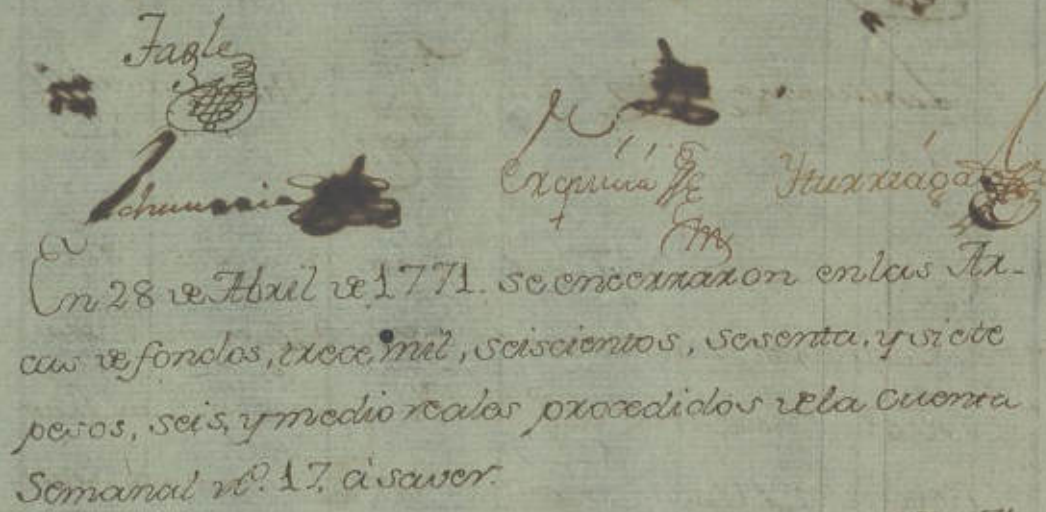 Tagle
Yturriaga
En 28 de Abril de 1771. se encerraron en las Ar-
cas de fondos, trece mil, seiscientos, sesenta, y siete
pesos, seis, y medio reales procedidos de la Cuenta
Semanal nº. 17. à saver.